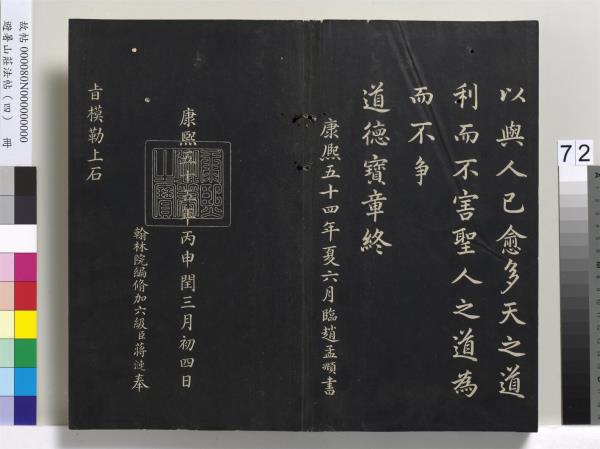 以與人已愈多天之道
利而不害聖人之道為
而不爭
道德寶章終
康熙五十四年夏六月臨趙孟頫書
康熙五十五年丙申閏三月初四日
翰林院編修加六級臣蔣漣奉
旨模勒上石
故帖 000080N000000000
避暑山莊法帖(四) 冊
72